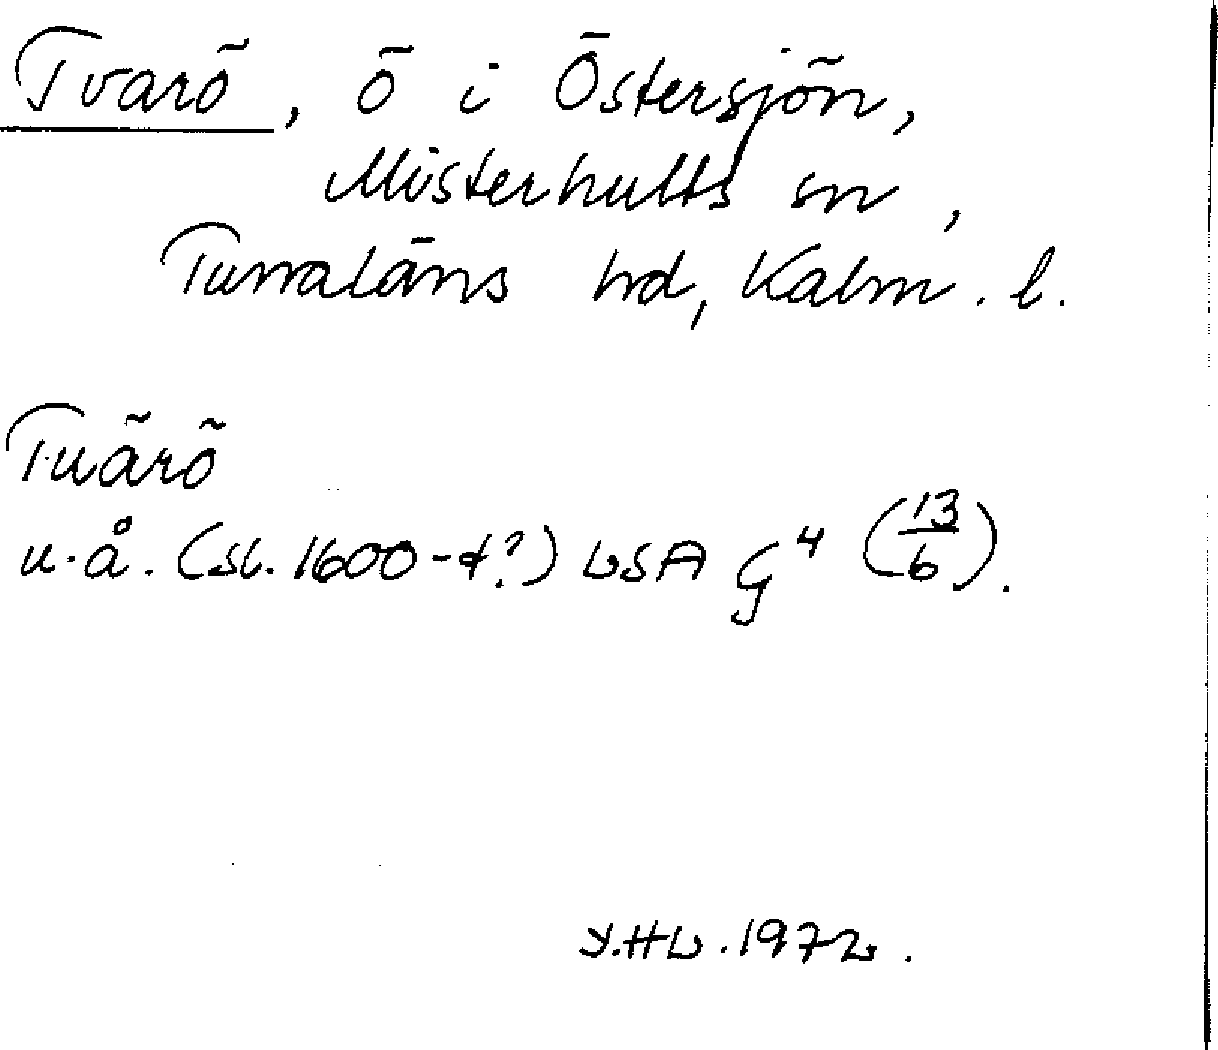 Tvarö, ö i Östersjön,
Misterhults sn,
Tunaläns hd, Kalm. l.
Tuärö
u.å. (sl. 1600-t?) LSA G⁴ (13/6).
Y.HL. 1972.